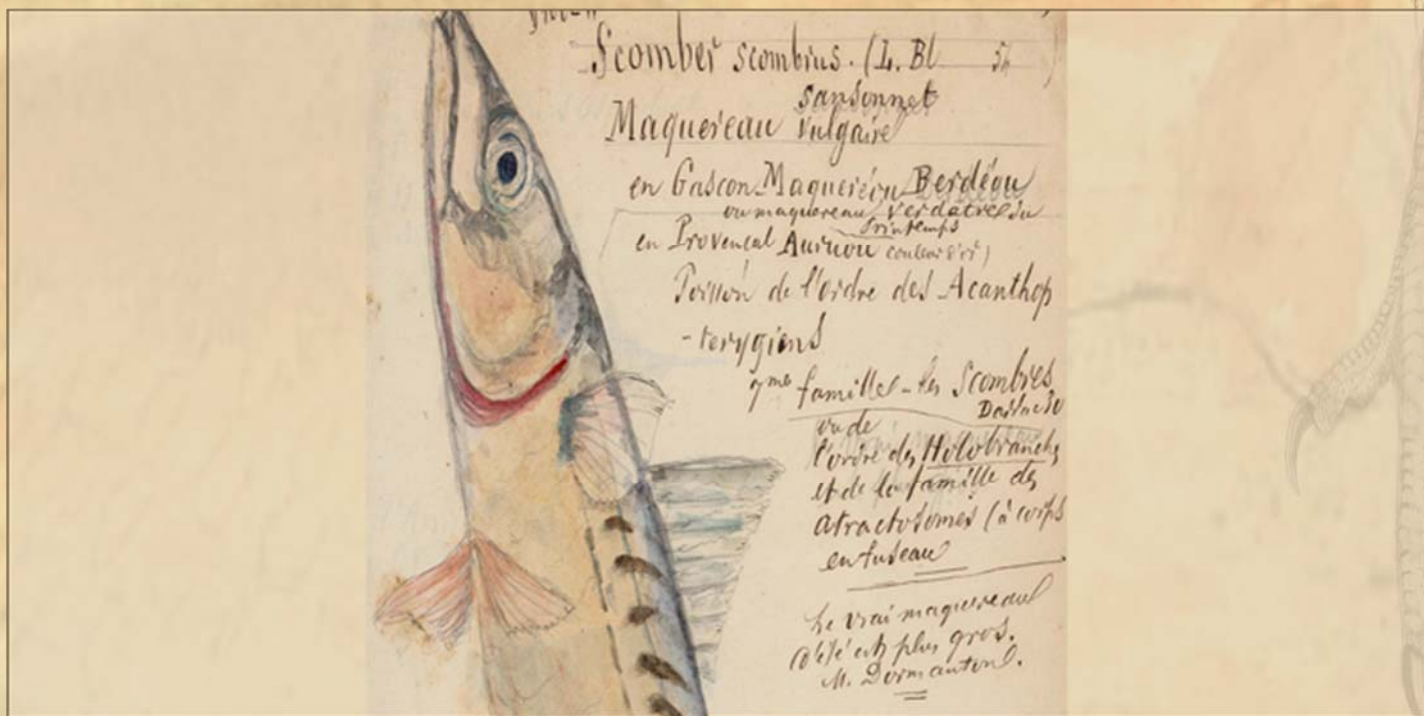 Scomber scombrus. (L. Bl 54 )
sansonnet
Maquereau vulgaire
en Gascon Maquereou Berdéou
ou maquereau verdatre du
Printemps
en Provençal Auruou couleur d'or)
Poisson de l'ordre des Acanthop
-terygiens
7me famille - les Scombres
ou de
l'ordre des Holobranches
et de la famille des
atractosomes (à corps
en fuseau
Le vrai maquereau
d'été est plus gros.
M. Dormanteul.